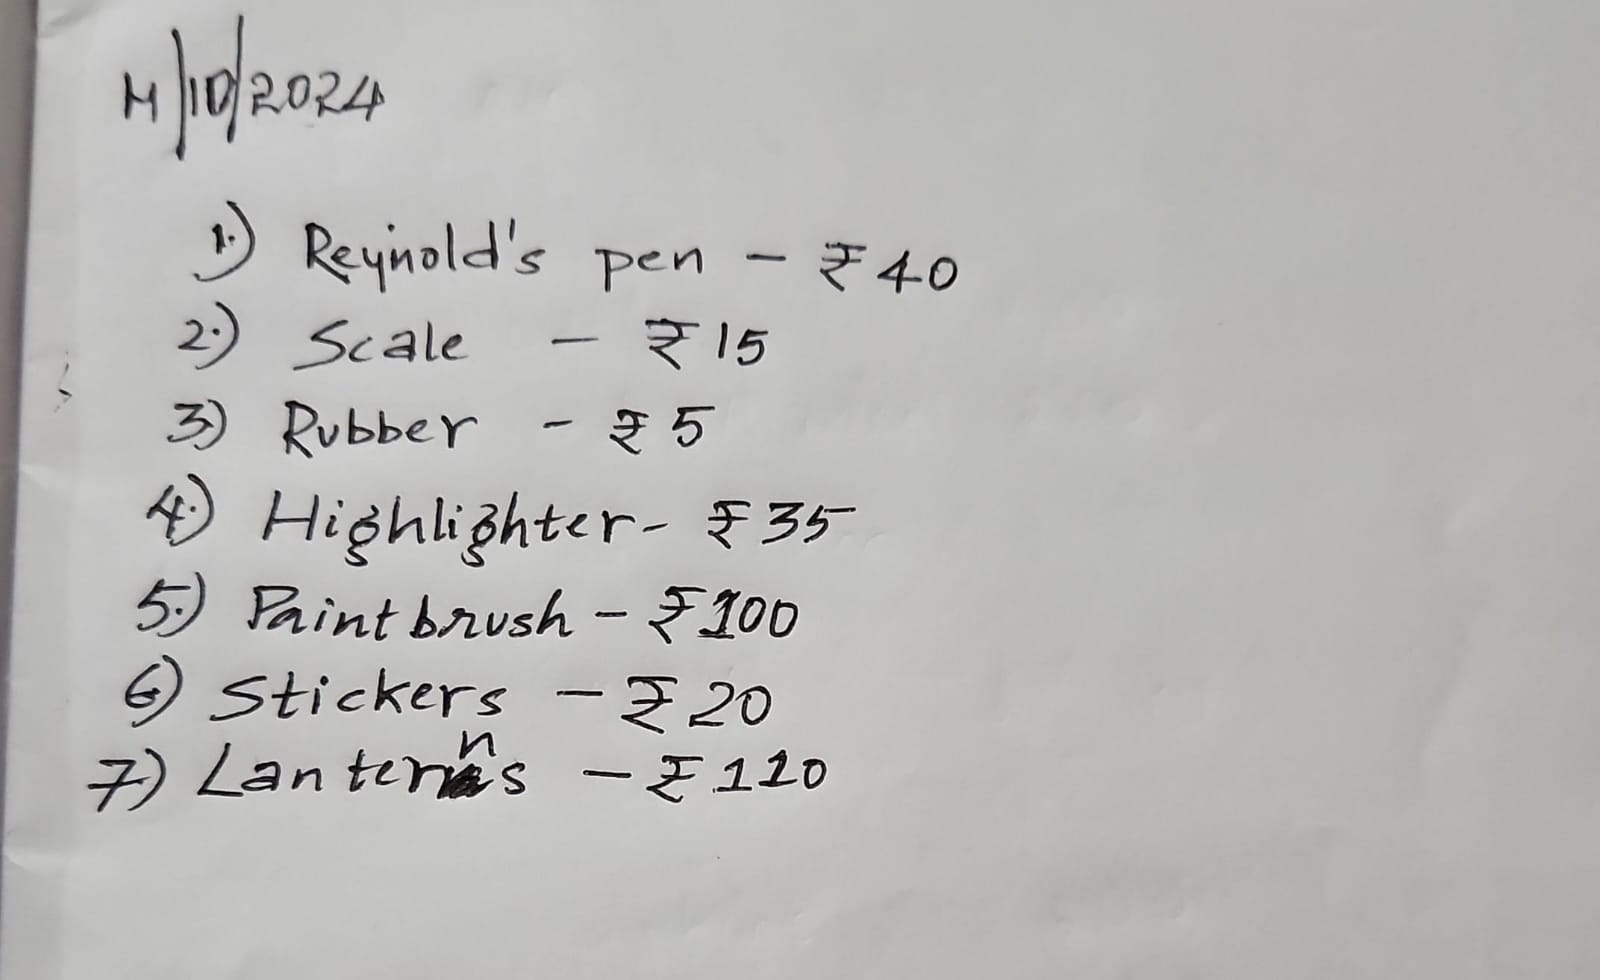 11/10/2024
1.) Reynold's pen - ₹40
2.) Scale - ₹15
3) Rubber - ₹5
4.) Highlighter - ₹35
5.) Paint brush - ₹100
6) Stickers - ₹20
7) Lanterns - ₹110